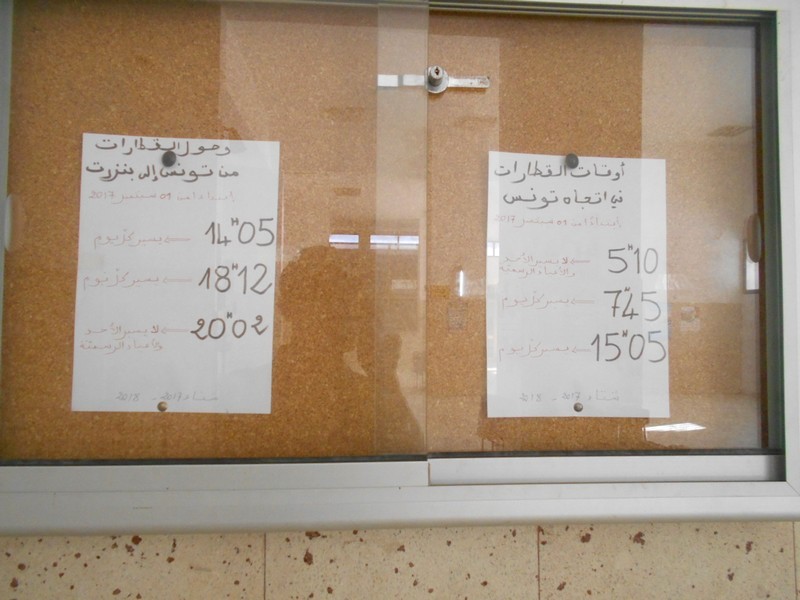 وصول القطارات
من تونس إلى بنزرت
إبتداء من 01 سبتمبر 2017
14H05 يسير كل يوم
18H12 يسير كل يوم
20H02 لا يسير الأحد
والأعياد الرسمية
شتاء 2017 - 2018
أوقات القطارات
في اتجاه تونس
إبتداء من 01 سبتمبر 2017
5H10 لا يسير الأحد
والأعياد الرسمية
7H45 يسير كل يوم
15H05 يسير كل يوم
شتاء 2017 - 2018